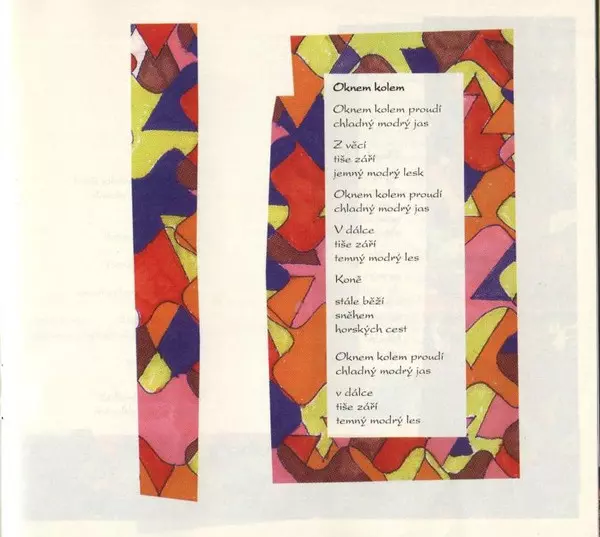 Oknem kolem
Oknem kolem proudí
chladný modrý jas
Z věcí
tiše září
jemný modrý lesk
Oknem kolem proudí
chladný modrý jas
V dálce
tiše září
temný modrý les
Koně
stále běží
sněhem
horských cest
Oknem kolem proudí
chladný modrý jas
v dálce
tiše září
temný modrý les